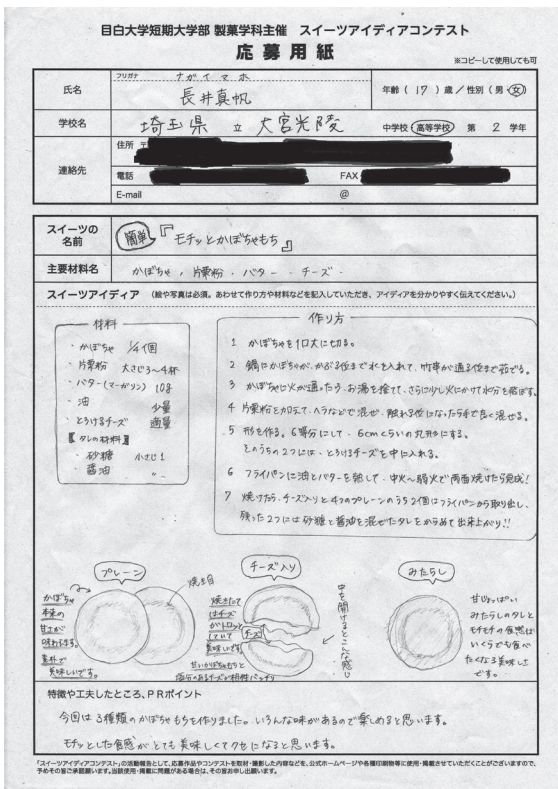 目白大学短期大学部 製菓学科主催　スイーツアイディアコンテスト
応募用紙
※コピーして使用しても可
フリガナ　ナガイマホ
氏名　長井真帆　年齢（17）歳／性別（男・女）
学校名　埼玉県立大宮光陵　中学校・高等学校　第2学年
連絡先
住所 〒
電話　FAX
E-mail　@
スイーツの名前　簡単『モチッとかぼちゃもち』
主要材料名　かぼちゃ・片栗粉・バター・チーズ・
スイーツアイディア　（絵や写真は必須。あわせて作り方や材料などを記入していただき、アイディアを分かりやすく伝えてください。）
材料
・かぼちゃ　1/4個
・片栗粉　大さじ3〜4杯
・バター(マーガリン)　10g
・油　少量
・とろけるチーズ　適量
【タレの材料】
・砂糖　小さじ1
・醤油　〃
作り方
1　かぼちゃを1口大に切る。
2　鍋にかぼちゃが、かぶる位まで水を入れて、竹串が通る位まで茹でる。
3　かぼちゃに火が通ったら、お湯を捨て、さらに少し火にかけて水分を飛ばす。
4　片栗粉を加えて、ヘラなどで混ぜ、触れる位になったら手で良く混ぜる。
5　形を作る。6等分にして、6cmくらいの丸形にする。
そのうちの2つには、とろけるチーズを中に入れる。
6　フライパンに油とバターを熱して、中火〜弱火で両面焼けたら完成!
7　焼けたら、チーズ入りと4つのプレーンのうち2個はフライパンから取り出し、
残った2つには砂糖と醤油を混ぜたタレをからめて出来上がり!!
プレーン
焼き目
かぼちゃ
本来の
甘さが
味わえます。
素朴で
美味しいです。
チーズ入り
焼きたて
はチーズ
がトロッと
していて
美味しいです。
チーズ
甘いかぼちゃもちと
塩分のあるチーズが相性バッチリ
中を開けるとこんな感じ
みたらし
甘じょっぱい
みたらしのタレと
モチモチの食感は
いくらでも食べ
たくなる美味しさ
です。
特徴や工夫したところ、PRポイント
今回は3種類のかぼちゃもちを作りました。いろんな味があるので楽しめると思います。
モチッとした食感がとても美味しくてクセになると思います。
「スイーツアイディアコンテスト」の活動報告として、応募作品やコンテストを取材・撮影した内容などを、公式ホームページや各種印刷物等に使用・掲載させていただくことがございますので、
予めその旨ご承諾願います。当該使用・掲載に問題がある場合は、その旨お申し出願います。